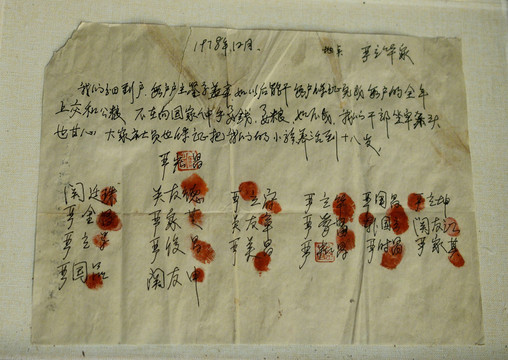 1978年12月. 地点 严立华家
我们分田到户每户户主签字盖章如以后能干每户保证完成每户的全年
上交和公粮 不在向国家伸手要钱要粮 如不成 我们干部坐牢杀头
也甘心 大家社员也保证把我们的小孩养活到十八岁。
严宏昌
关廷珠 关友德 严立符 严立华 严国昌 严立坤
严金昌 严家芝 关友章 严学昌 韩国云 关友江
严立学 严俊昌 严美昌 严宏昌 严付昌 严家其
严国品 关友申